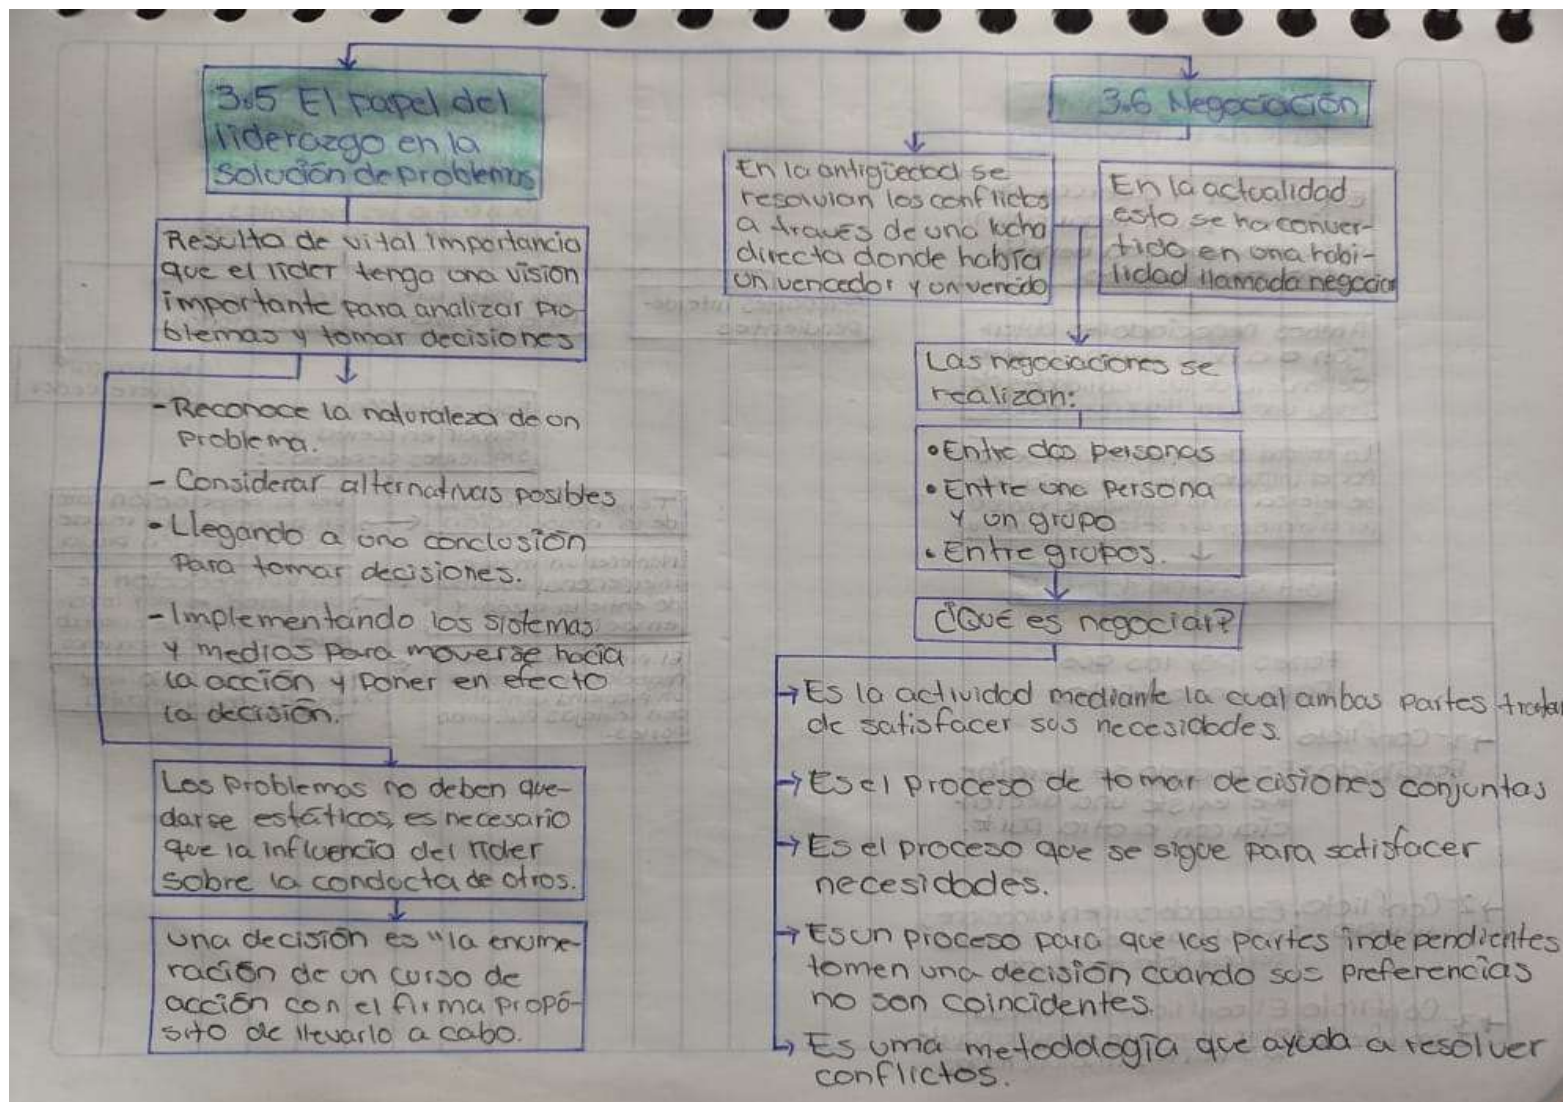 3.5 El papel del
liderazgo en la
solución de problemas
Resulta de vital importancia
que el líder tenga una visión
importante para analizar pro-
blemas y tomar decisiones
- Reconoce la naturaleza de un
problema.
- Considerar alternativas posibles
- Llegando a una conclusión
para tomar decisiones.
- Implementando los sistemas
y medios para moverse hacia
la acción y poner en efecto
la decisión.
Los problemas no deben que-
darse estáticos, es necesario
que la influencia del líder
sobre la conducta de otros.
una decisión es "la enume-
ración de un curso de
acción con el firma propó-
sito de llevarlo a cabo.
3.6 Negociación
En la antigüedad se
resolvían los conflictos
a través de una lucha
directa donde habría
un vencedor y un vencido
En la actualidad
esto se ha conver-
tido en una habi-
lidad llamada negociar
Las negociaciones se
realizan:
• Entre dos personas
• Entre una persona
y un grupo
• Entre grupos.
¿Qué es negociar?
→ Es la actividad mediante la cual ambas partes tratan
de satisfacer sus necesidades.
→ Es el proceso de tomar decisiones conjuntas
→ Es el proceso que se sigue para satisfacer
necesidades.
→ Es un proceso para que las partes independientes
tomen una decisión cuando sus preferencias
no son coincidentes.
→ Es uma metodología que ayuda a resolver
conflictos.